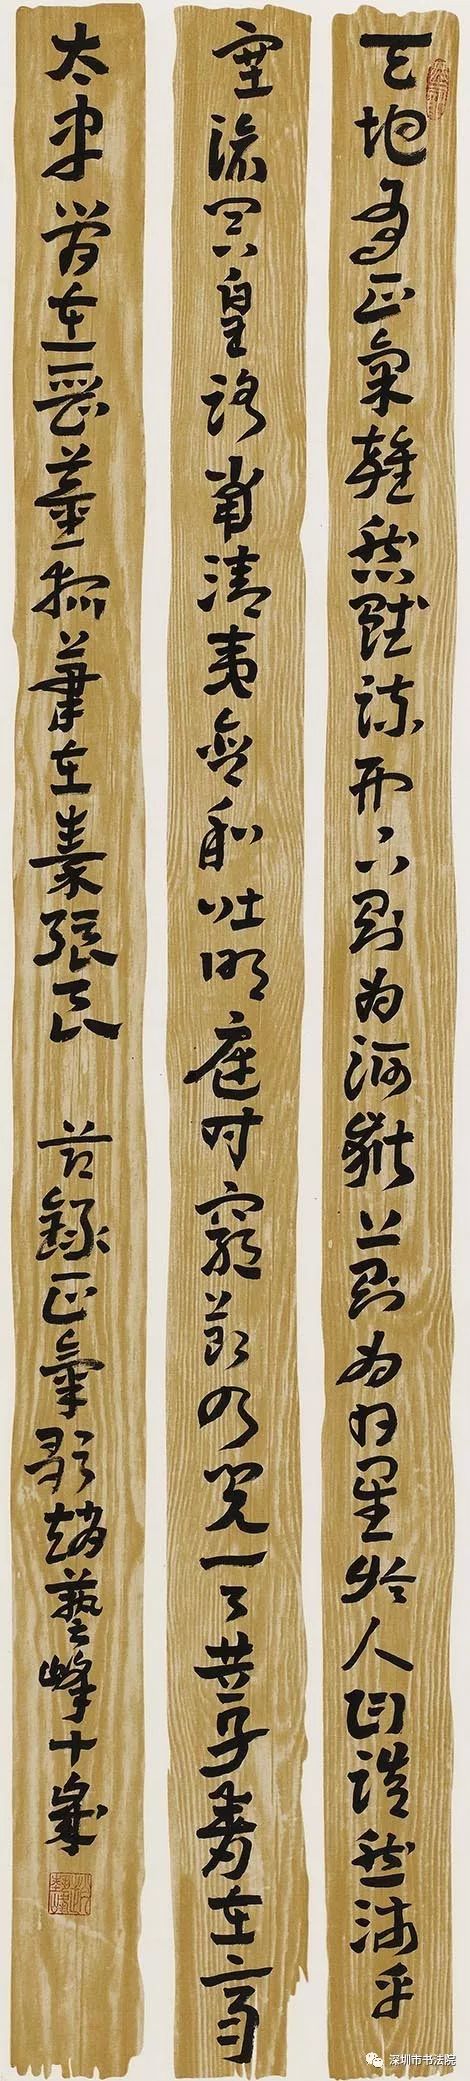 天地有正氣雜然賦流形下則為河嶽上則為日星於人曰浩然沛乎
塞滄冥皇路當清夷含和吐明庭时窮節乃見一一垂丹青在齊
太史簡在晉董狐筆在秦張良 节錄正氣歌趙藝峰十
深圳市书法院